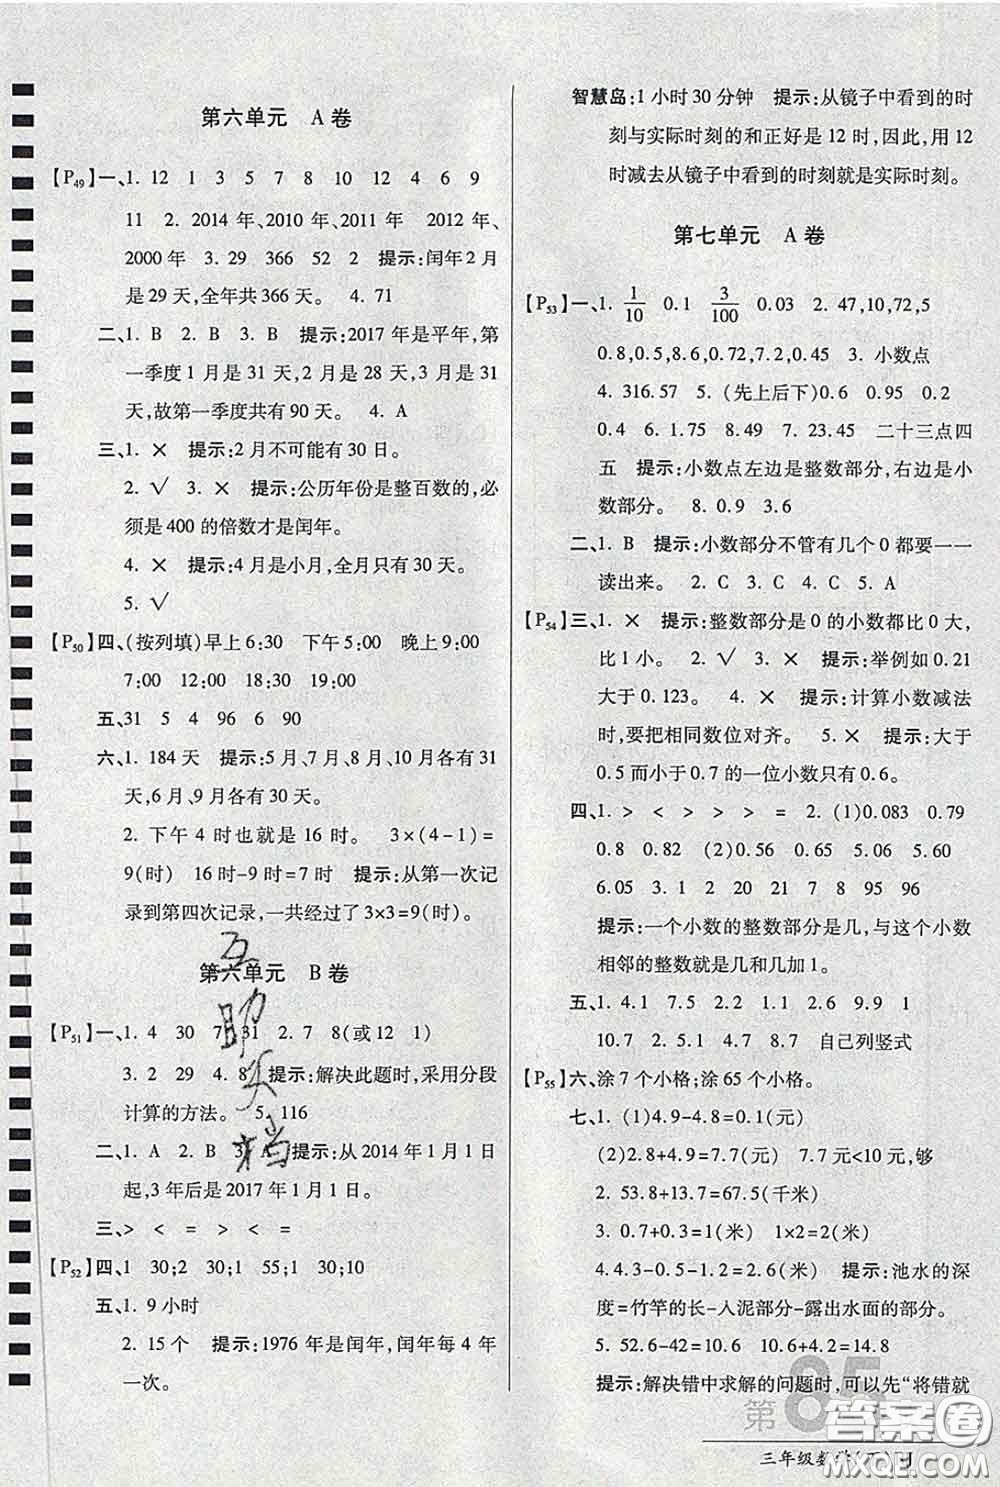 第六单元 A卷
【P49】一、1. 12 1 3 5 7 8 10 12 4 6 9
11 2. 2014 年、2010 年、2011 年 2012 年、
2000 年 3. 29 366 52 2 提示:闰年2 月
是 29 天,全年共 366 天。 4. 71
二、1. B 2. B 3. B 提示:2017 年是平年,第
一季度 1 月是 31 天,2 月是 28 天,3 月是 31
天,故第一季度共有 90 天。 4. A
三、1. × 提示:2 月不可能有 30 日。
2. √ 3. × 提示:公历年份是整百数的,必
须是 400 的倍数才是闰年。
4. × 提示:4 月是小月,全月只有 30 天。
5. √
【P50】四、(按列填)早上 6:30 下午 5:00 晚上 9:00
7:00 12:00 18:30 19:00
五、31 5 4 96 6 90
六、1. 184 天 提示:5 月、7 月、8 月、10 月各有 31
天,6 月、9 月各有 30 天。
2. 下午 4 时也就是 16 时。 3×(4-1)=
9(时) 16 时-9 时=7 时 提示:从第一次记
录到第四次记录,一共经过了 3×3=9(时)。
第六单元 B卷
【P51】一、1. 4 30 7 31 2. 7 8(或 12 1)
3. 2 29 4. 8 提示:解决此题时,采用分段
计算的方法。 5. 116
二、1. A 2. B 3. A 提示:从 2014 年 1 月 1 日
起,3 年后是 2017 年 1 月 1 日。
三、> < = > < =
【P52】四、1 30;2 30;1 55;30;10
五、1. 9 小时
2. 15 个 提示:1976 年是闰年,闰年每 4 年
一次。
互
助
头
档
智慧岛:1 小时 30 分钟 提示:从镜子中看到的时
刻与实际时刻的和正好是 12 时,因此,用 12
时减去从镜子中看到的时刻就是实际时刻。
第七单元 A卷
【P53】一、1. 1/10 0.1 3/100 0.03 2. 47,10,72,5
0.8,0.5,8.6,0.72,7.2,0.45 3. 小数点
4. 316.57 5. (先上后下)0.6 0.95 0.2
0.4 6. 1.75 8.49 7. 23.45 二十三点四
五 提示:小数点左边是整数部分,右边是小
数部分。 8. 0.9 3.6
二、1. B 提示:小数部分不管有几个 0 都要一一
读出来。 2. C 3. C 4. C 5. A
【P54】三、1. × 提示:整数部分是 0 的小数都比 0 大,
比 1 小。 2. √ 3. × 提示:举例如 0.21
大于 0.123。 4. × 提示:计算小数减法
时,要把相同数位对齐。 5. × 提示:大于
0.5 而小于 0.7 的一位小数只有 0.6。
四、1. > < > > > = 2. (1)0.083 0.79
0.8 0.82 (2)0.56 0.65 5.06 5.60
6.05 3. 1 2 20 21 7 8 95 96
提示:一个小数的整数部分是几,与这个小数
相邻的整数就是几和几加 1。
五、1. 4.1 7.5 2.2 2.6 9.9 1
10.7 2. 10.4 2.7 5.2 自己列竖式
【P55】六、涂 7 个小格;涂 65 个小格。
七、1. (1)4.9-4.8=0.1(元)
(2)2.8+4.9=7.7(元) 7.7 元<10 元,够
2. 53.8+13.7=67.5(千米)
3. 0.7+0.3=1(米) 1×2=2(米)
4.4.3-0.4-0.9=3(米) 提示:池水的深
度=竹竿的长-入泥部分-露出水面的部分。
5. 52.6-42=10.6 10.6+4.2=14.8
提示:解决错中求解的问题时,可以先“将错就
第85
答案卷
MXQE.COM
三年级数学(下)RJ